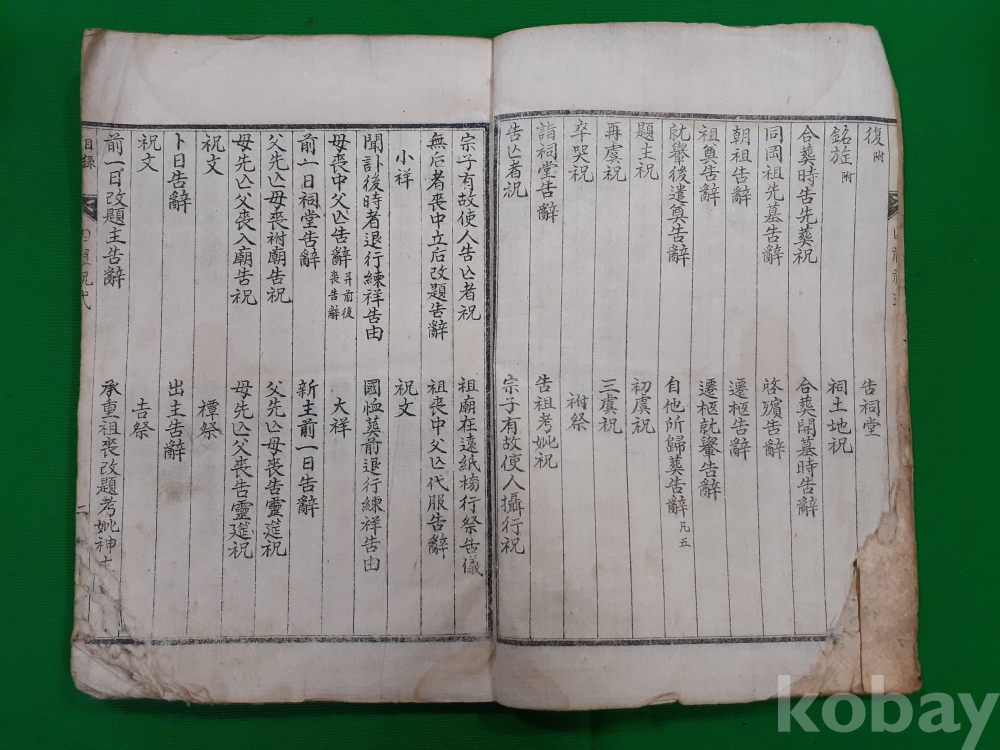 復附 告祠堂
銘旌附 祠土地祝
合葬時告先葬祝 合葬開墓時告辭
同岡祖先墓告辭 啓殯告辭
朝祖告辭 遷柩告辭
祖奠告辭 遷柩就轝告辭
就轝後遣奠告辭 自他所歸葬告辭凡五
題主祝 初虞祝
再虞祝 三虞祝
卒哭祝 祔祭
詣祠堂告辭 告祖考妣祝
告亡者祝 宗子有故使人攝行祝
宗子有故使人告亡者祝 祖廟在遠紙榜行祭告儀
無后者喪中立后改題告辭 祖喪中父亡代服告辭
小祥 祝文
聞訃後時者退行練祥告由 國恤葬前退行練祥告由
母喪中父亡告辭幷前後喪告辭 大祥
前一日祠堂告辭 新主前一日告辭
父先亡母喪祔廟告祝 父先亡母喪告靈筵祝
母先亡父喪入廟告祝 母先亡父喪告靈筵祝
祝文 禫祭
卜日告辭 出主告辭
祝文 吉祭
前一日改題主告辭 承重祖喪改題考妣神主
目錄 二
kobay